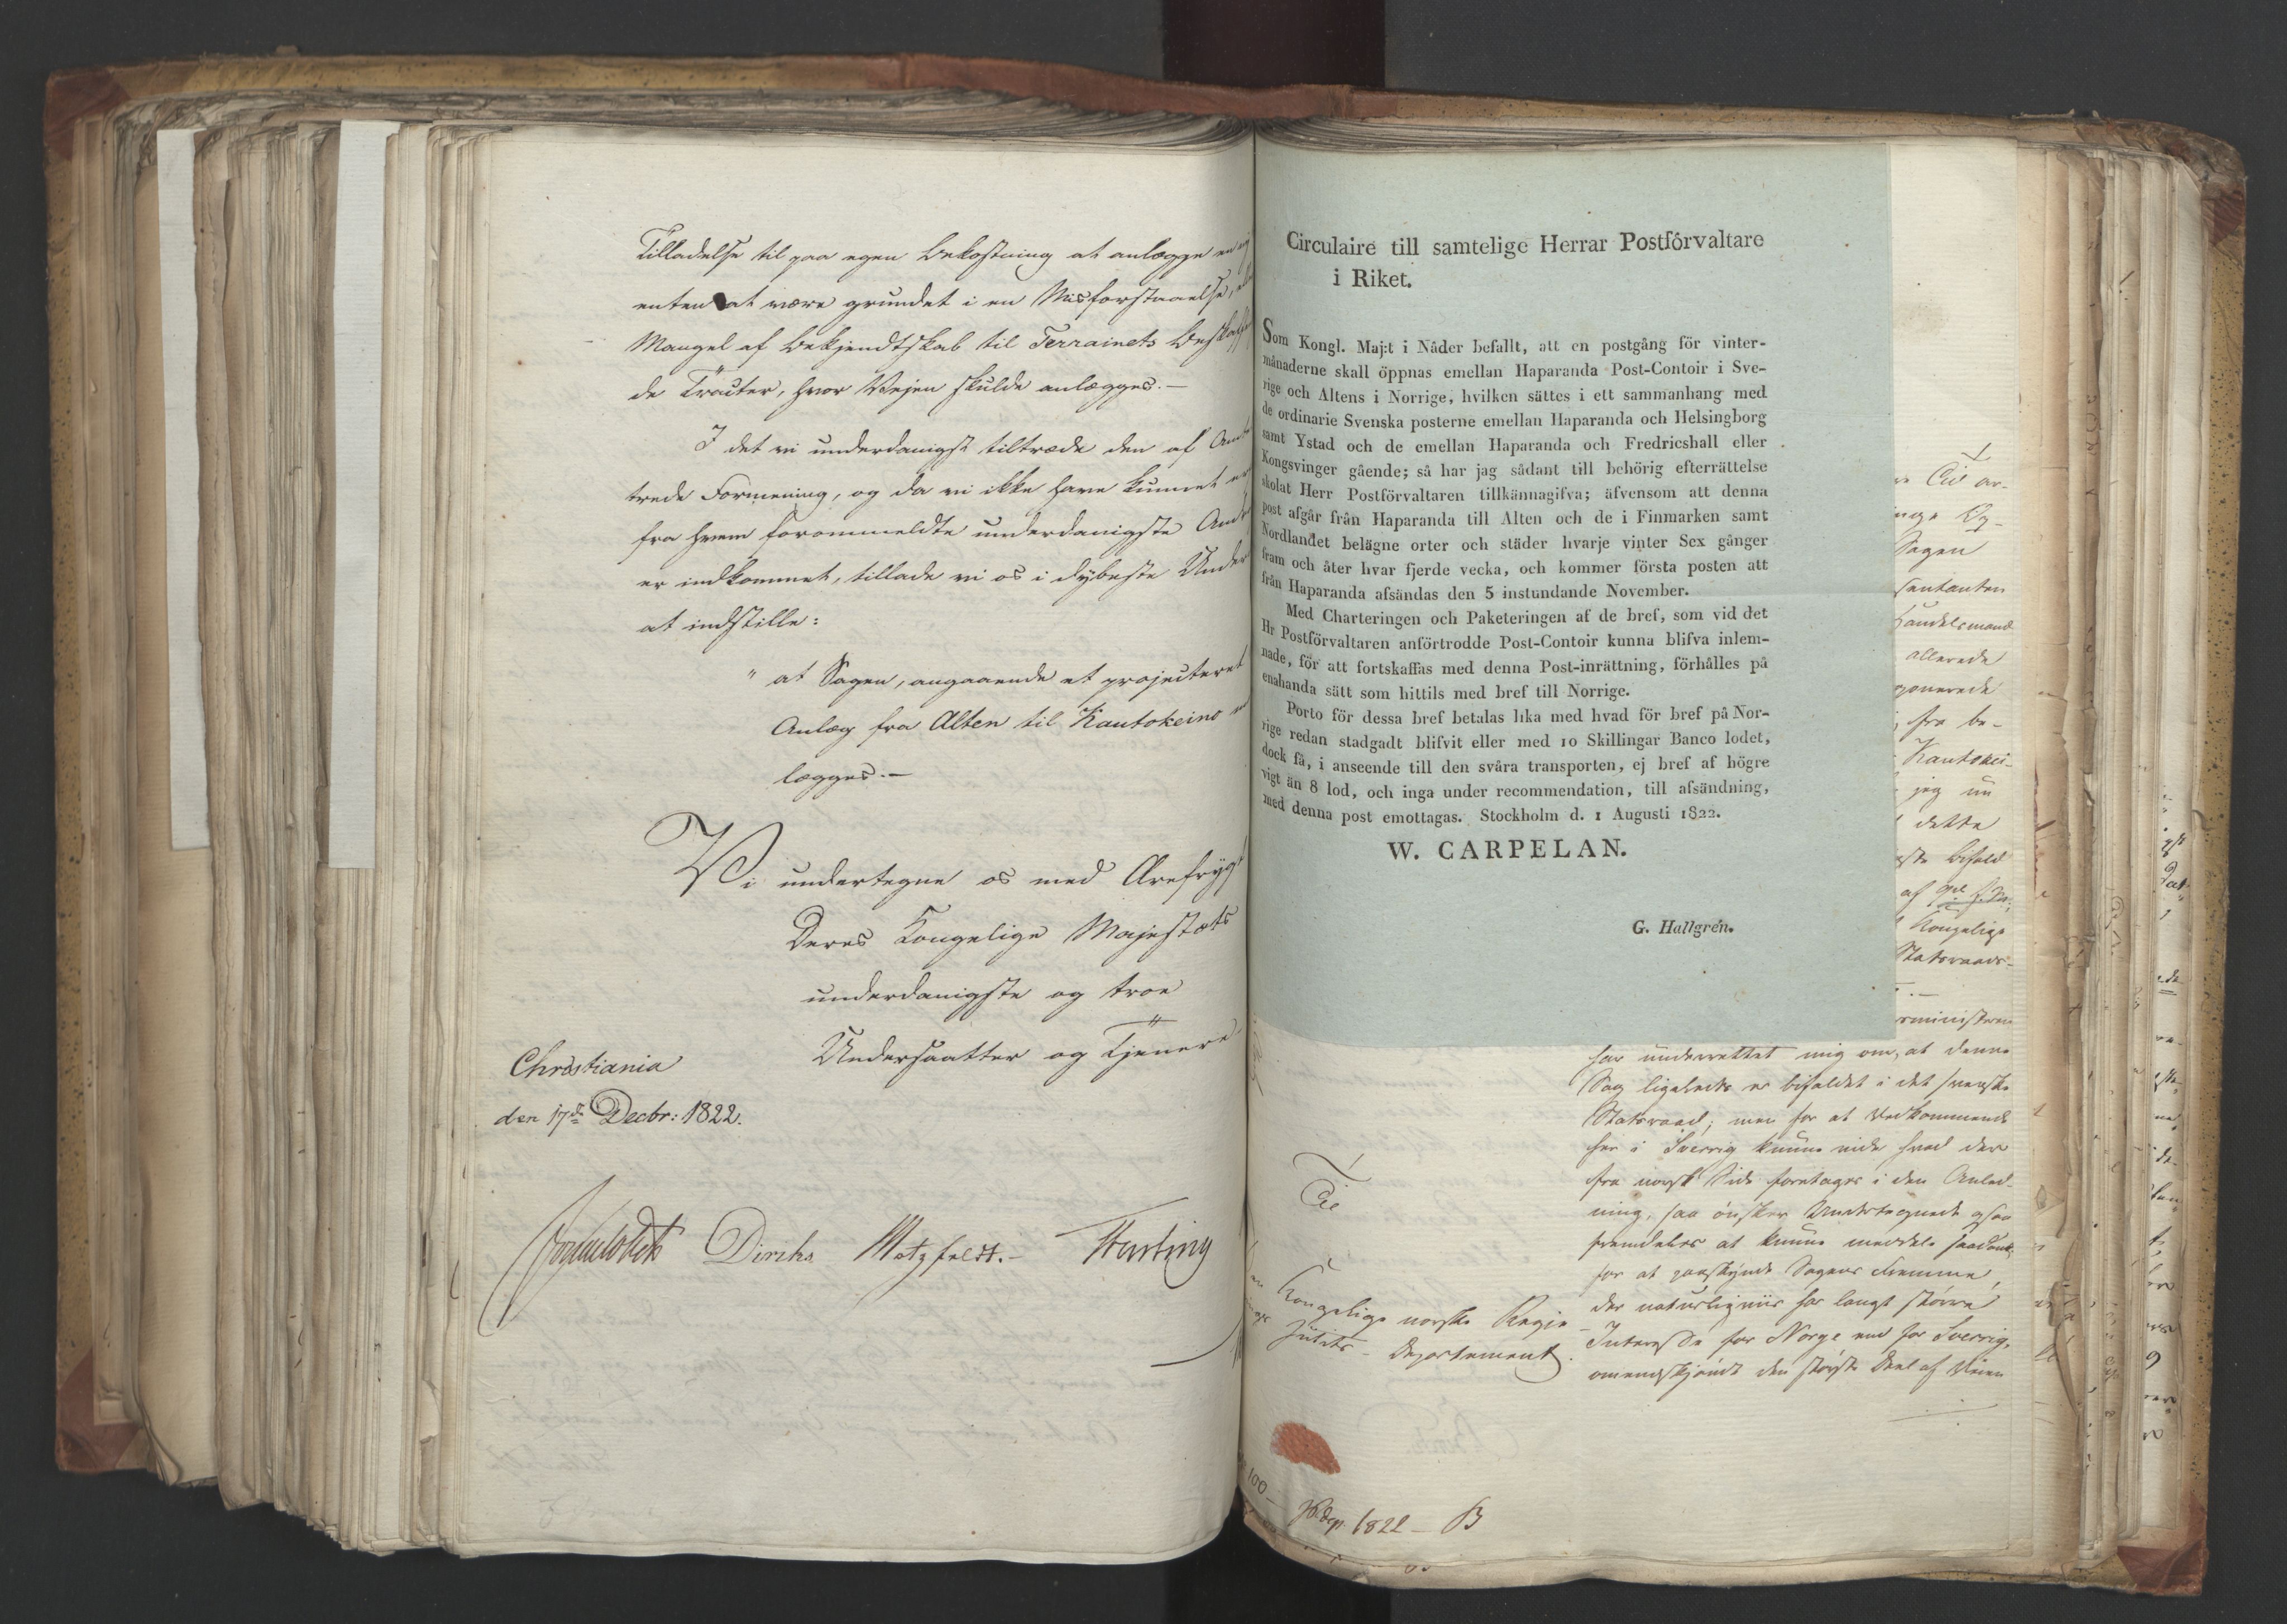 Tilladelse til paa egen Bekostning at anlægge en
enten at være grundet i en Misforstaaelse,
Mangel af Bekjendtskab til Terrainets
de Tracter, hvor Vejen skulde anlægges.—
I det vi underdanigst tiltræde den af
trede Formening, og da vi ikke have kunnet
fra hvem forommeldte underdanigste
er indkommet, tillade vi os i dybeste
at indstille:
" at Sagen, angaaende et projecteret
Anlæg fra Alten til Kautokeino
lægges.—
Vi undertegne os med
Deres Kongelige Majestæts
underdanigste og troe
Undersaatter og Tjenere
Christiania
den 17de Decbr: 1822.
Diriks Motzfeldt.-
Circulaire till samtelige Herrar Postförvaltare
i Riket.
Som Kongl. Maj:t i Nåder befallt, att en postgång för vinter-
månaderne skall öppnas emellan Haparanda Post-Contoir i Sve-
rige och Altens i Norrige, hvilken sättes i ett sammanhang med
de ordinarie Svenska posterne emellan Haparanda och Helsingborg
samt Ystad och de emellan Haparanda och Fredricshall eller
Kongsvinger gående; så har jag sådant till behörig efterrättelse
skolat Herr Postförvaltaren tillkännagifva; äfvensom att denna
post afgår från Haparanda till Alten och de i Finmarken samt
Nordlandet belägne orter och städer hvarje vinter Sex gånger
fram och åter hvar fjerde vecka, och kommer första posten att
från Haparanda afsändas den 5 instundande November.
Med Charteringen och Paketeringen af de bref, som vid det
Hr Postförvaltaren anförtrodde Post-Contoir kunna blifva inlem-
nade, för att fortskaffas med denna Post-inrättning, förhålles på
enahanda sätt som hittils med bref till Norrige.
Porto för dessa bref betalas lika med hvad för bref på Nor-
rige redan stadgadt blifvit eller med 10 Skillingar Banco lodet,
dock få, i anseende till den svåra transporten, ej bref af högre
vigt än 8 lod, och inga under recommendation, till afsändning,
med denna post emottagas. Stockholm d. 1 Augusti 1822.
W. CARPELAN.
G. Hallgrén.
Sagen
Handelsmand
allerede
fra be-
Kautokei-
jeg nu
dette
Bifald
af
Kongelige
Statsraads-
har underrettet mig om, at denne
Sag ligeledes er bifaldet i det svenske
Statsraad; men for at Vedkommende
her i Sverrig kunne vide hvad der
fra norsk Side foretages i den Anled-
ning, saa ønsker Undertegnede ogsaa
fremdeles at kunne meddele saadant,
for at paaskynde Sagens Fremme,
der naturligviis har langt større
Interesse for Norge end for Sverrig,
omendskjøndt den største Deel af Veien
Til
Kongelige norske Regje-
Justits- Departement.
100
1822 - B